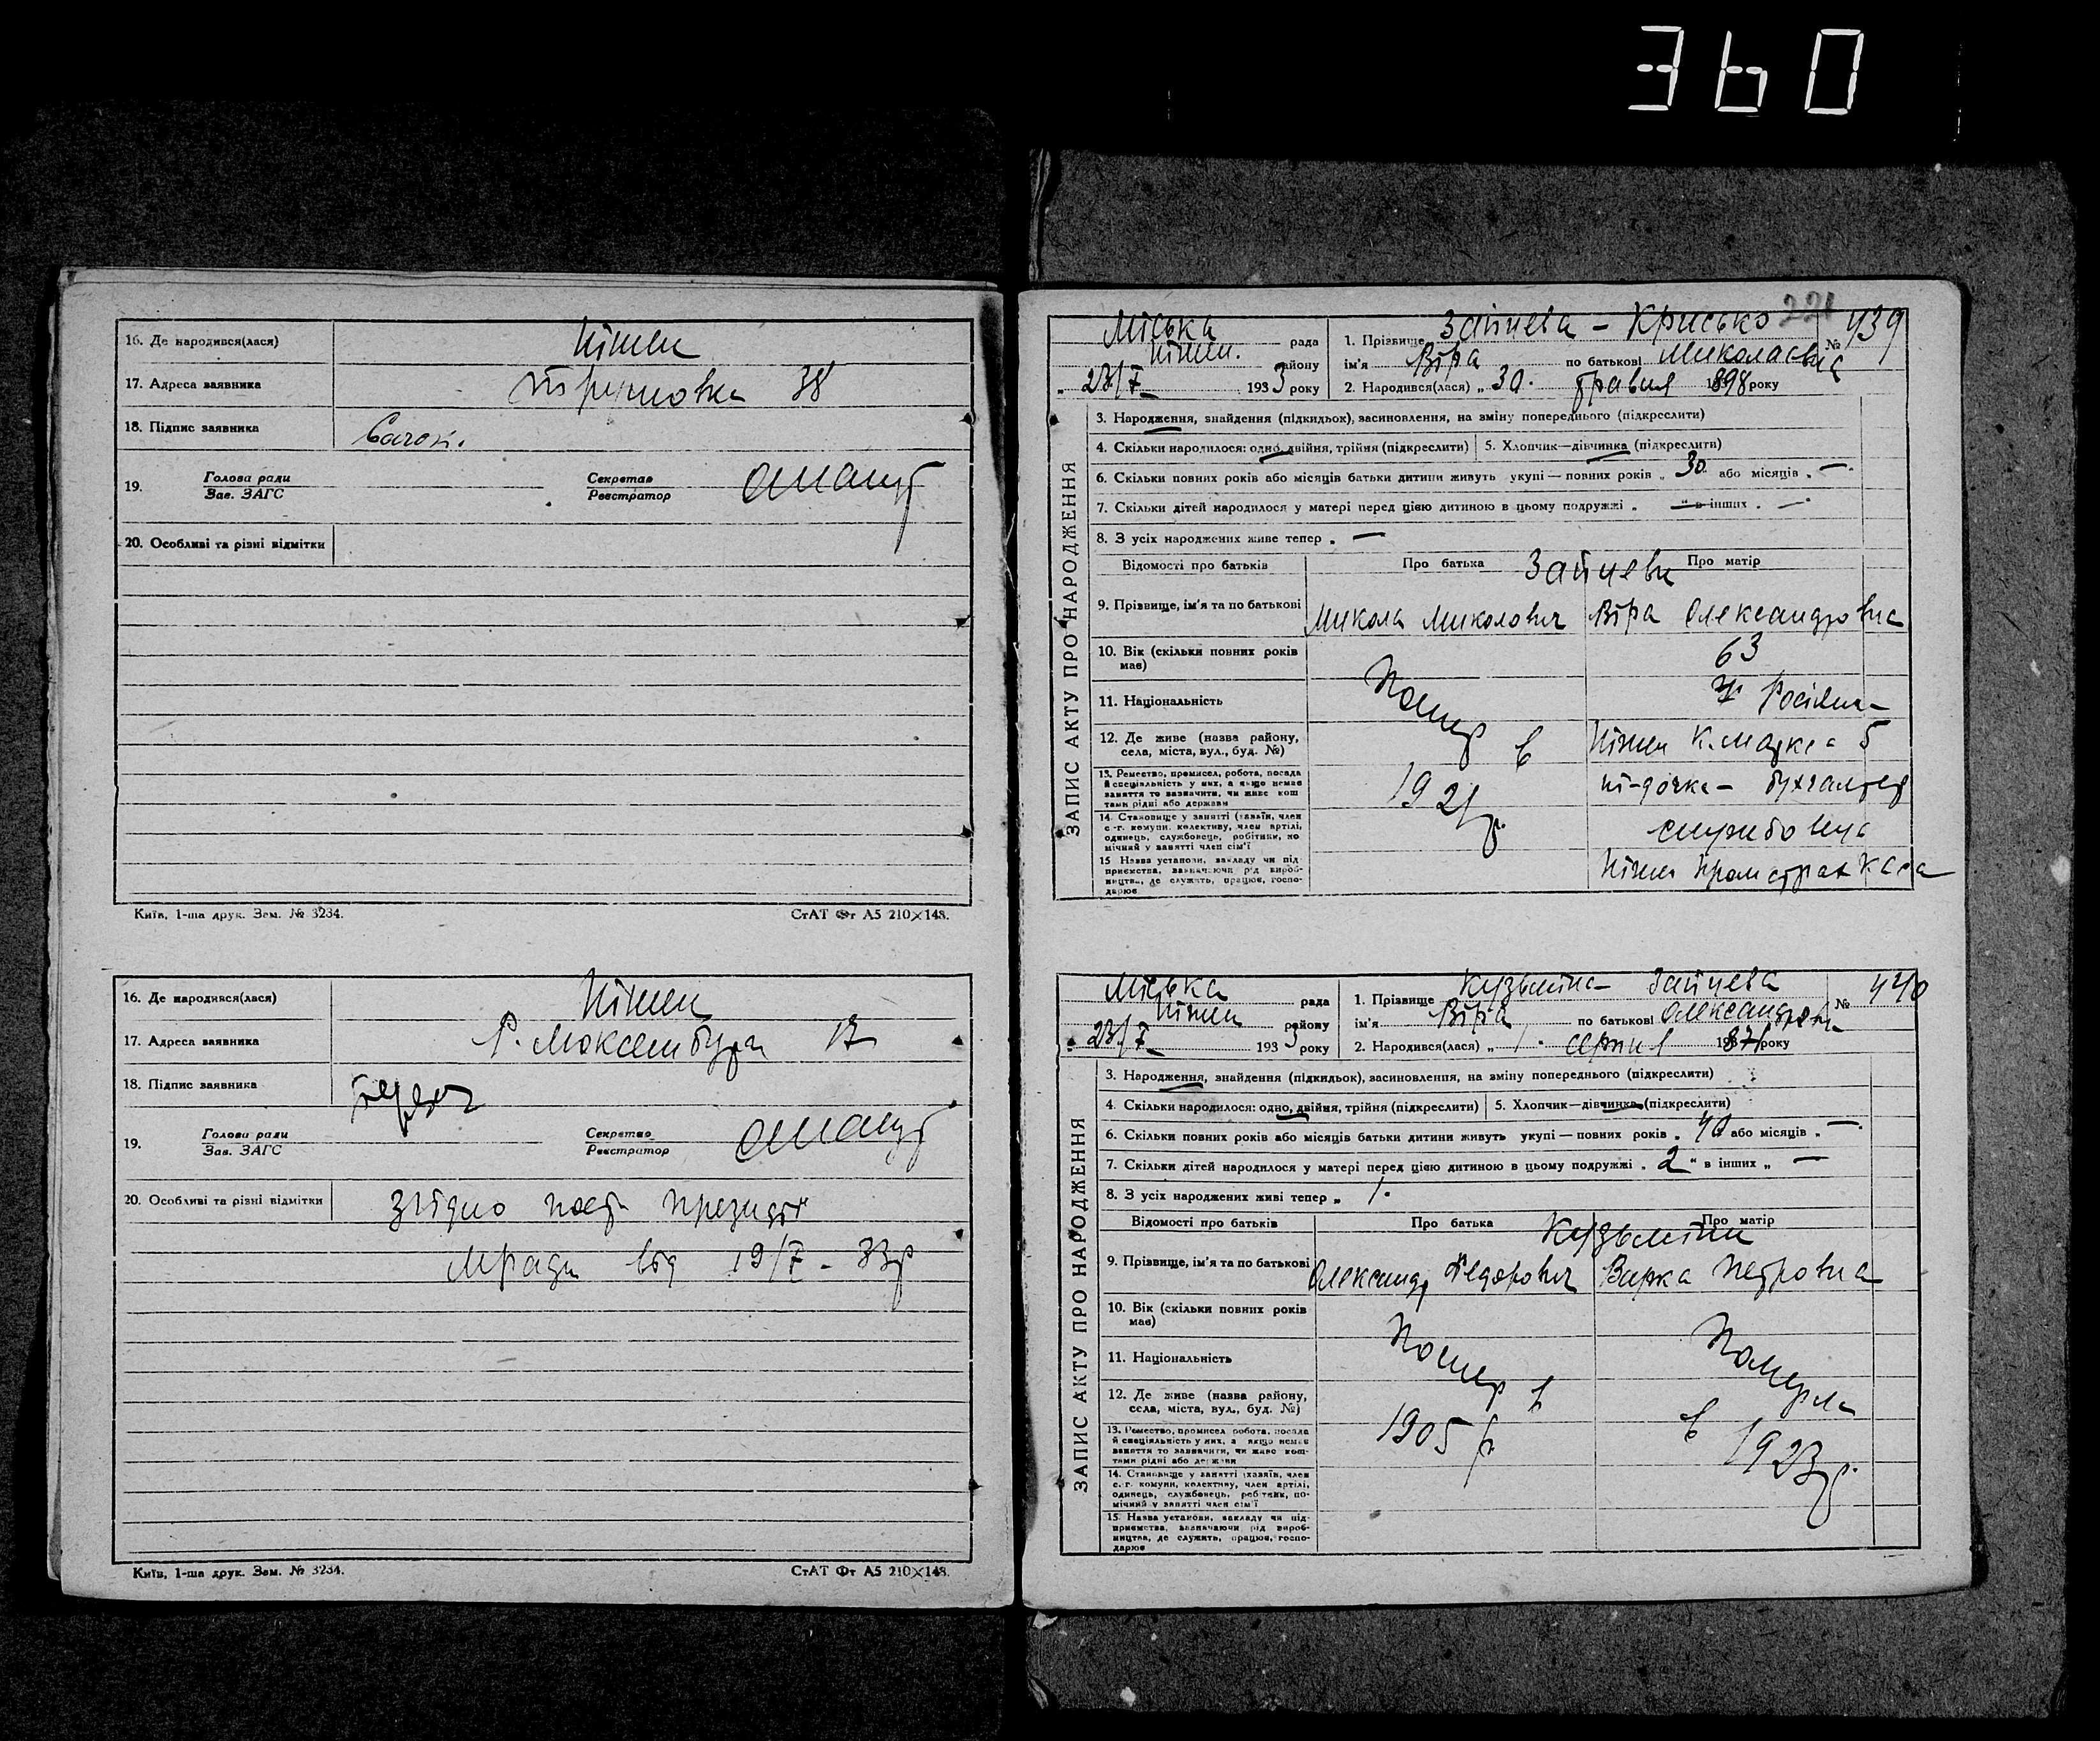 360
16. Де народився(лася) Ніжен
17. Адреса заявника 38
18. Підпис заявника
19. Голова ради Секретар
Зав. ЗАГС Реєстратор
20. Особливі та різні відмітки
Київ, 1-ша друк. Зам. № 3234. СтАТ Фт А5 210×148.
16. Де народився(лася) Ніжен
17. Адреса заявника Р. Люксембург 17
18. Підпис заявника
19. Голова ради Секретар
Зав. ЗАГС Реєстратор
20. Особливі та різні відмітки Згідно пост президії
Мради від 19/7 - 33р
Київ, 1-ша друк. Зам. № 3234. СтАТ Фт А5 210×148.
221
ЗАПИС АКТУ ПРО НАРОДЖЕННЯ
Міська рада
Ніжен. району
„ 23/7 1933 року
1. Прізвище Зайцева - Крисько № 439
ім'я Віра по батькові Миколаєвна
2. Народився(лася) „ 30. травня 1898 року
3. Народження, знайдення (підкидьок), засиновлення, на зміну попереднього (підкреслити)
4. Скільки народилося: одно, двійня, трійня (підкреслити) 5. Хлопчик—дівчинка (підкреслити)
6. Скільки повних років або місяців батьки дитини живуть укупі — повних років „ 30 або місяців „ —
7. Скільки дітей народилося у матері перед цією дитиною в цьому подружжі „ — “ в інших „ —
8. З усіх народжених живе тепер „ —
Відомості про батьків Про батька Зайцеви Про матір
9. Прізвище, ім'я та по батькові Микола Миколович Віра Олександровна
10. Вік (скільки повних років має) 63
11. Національність Помер в 1921 р. Росіянка
12. Де живе (назва району, села, міста, вул., буд. №) Ніжен К.Маркса 5
13. Ремество, промисел, робота, посада й спеціяльність у них, а якщо немає заняття то зазначити, чи живе коштами рідні або держави бухгалтер
14. Становище у занятті (хазяїн, член с.-г. комуни, колективу, член артілі, одинець, службовець, робітник, помічний у занятті член сім'ї службовця
15. Назва установи, закладу чи підприємства, зазначаючи рід виробництва, де служить, працює, господарює Ніжен Промстрахкаса
ЗАПИС АКТУ ПРО НАРОДЖЕННЯ
Міська рада
Ніжен району
„ 23/7 1933 року
1. Прізвище Кузьміна - Зайцева № 440
ім'я Віра по батькові Олександровн
2. Народився(лася) „ 1. серпня 1871 року
3. Народження, знайдення (підкидьок), засиновлення, на зміну попереднього (підкреслити)
4. Скільки народилося: одно, двійня, трійня (підкреслити) 5. Хлопчик—дівчинка (підкреслити)
6. Скільки повних років або місяців батьки дитини живуть укупі — повних років „ 40 або місяців „ —
7. Скільки дітей народилося у матері перед цією дитиною в цьому подружжі „ 2 “ в інших „ —
8. З усіх народжених живі тепер „ 1.
Відомості про батьків Про батька Кузьміни Про матір
9. Прізвище, ім'я та по батькові Олександр Федорович Варка Петровна
10. Вік (скільки повних років має)
11. Національність Помер в 1905 р. Померла в 1923 р.
12. Де живе (назва району, села, міста, вул., буд. №)
13. Ремество, промисел, робота, посада й спеціяльність у них, а якщо немає заняття то зазначити, чи живе коштами рідні або держави
14. Становище у занятті (хазяїн, член с.-г. комуни, колективу, член артілі, одинець, службовець, робітник, помічний у занятті член сім'ї
15. Назва установи, закладу чи підприємства, зазначаючи рід виробництва, де служить, працює, господарює